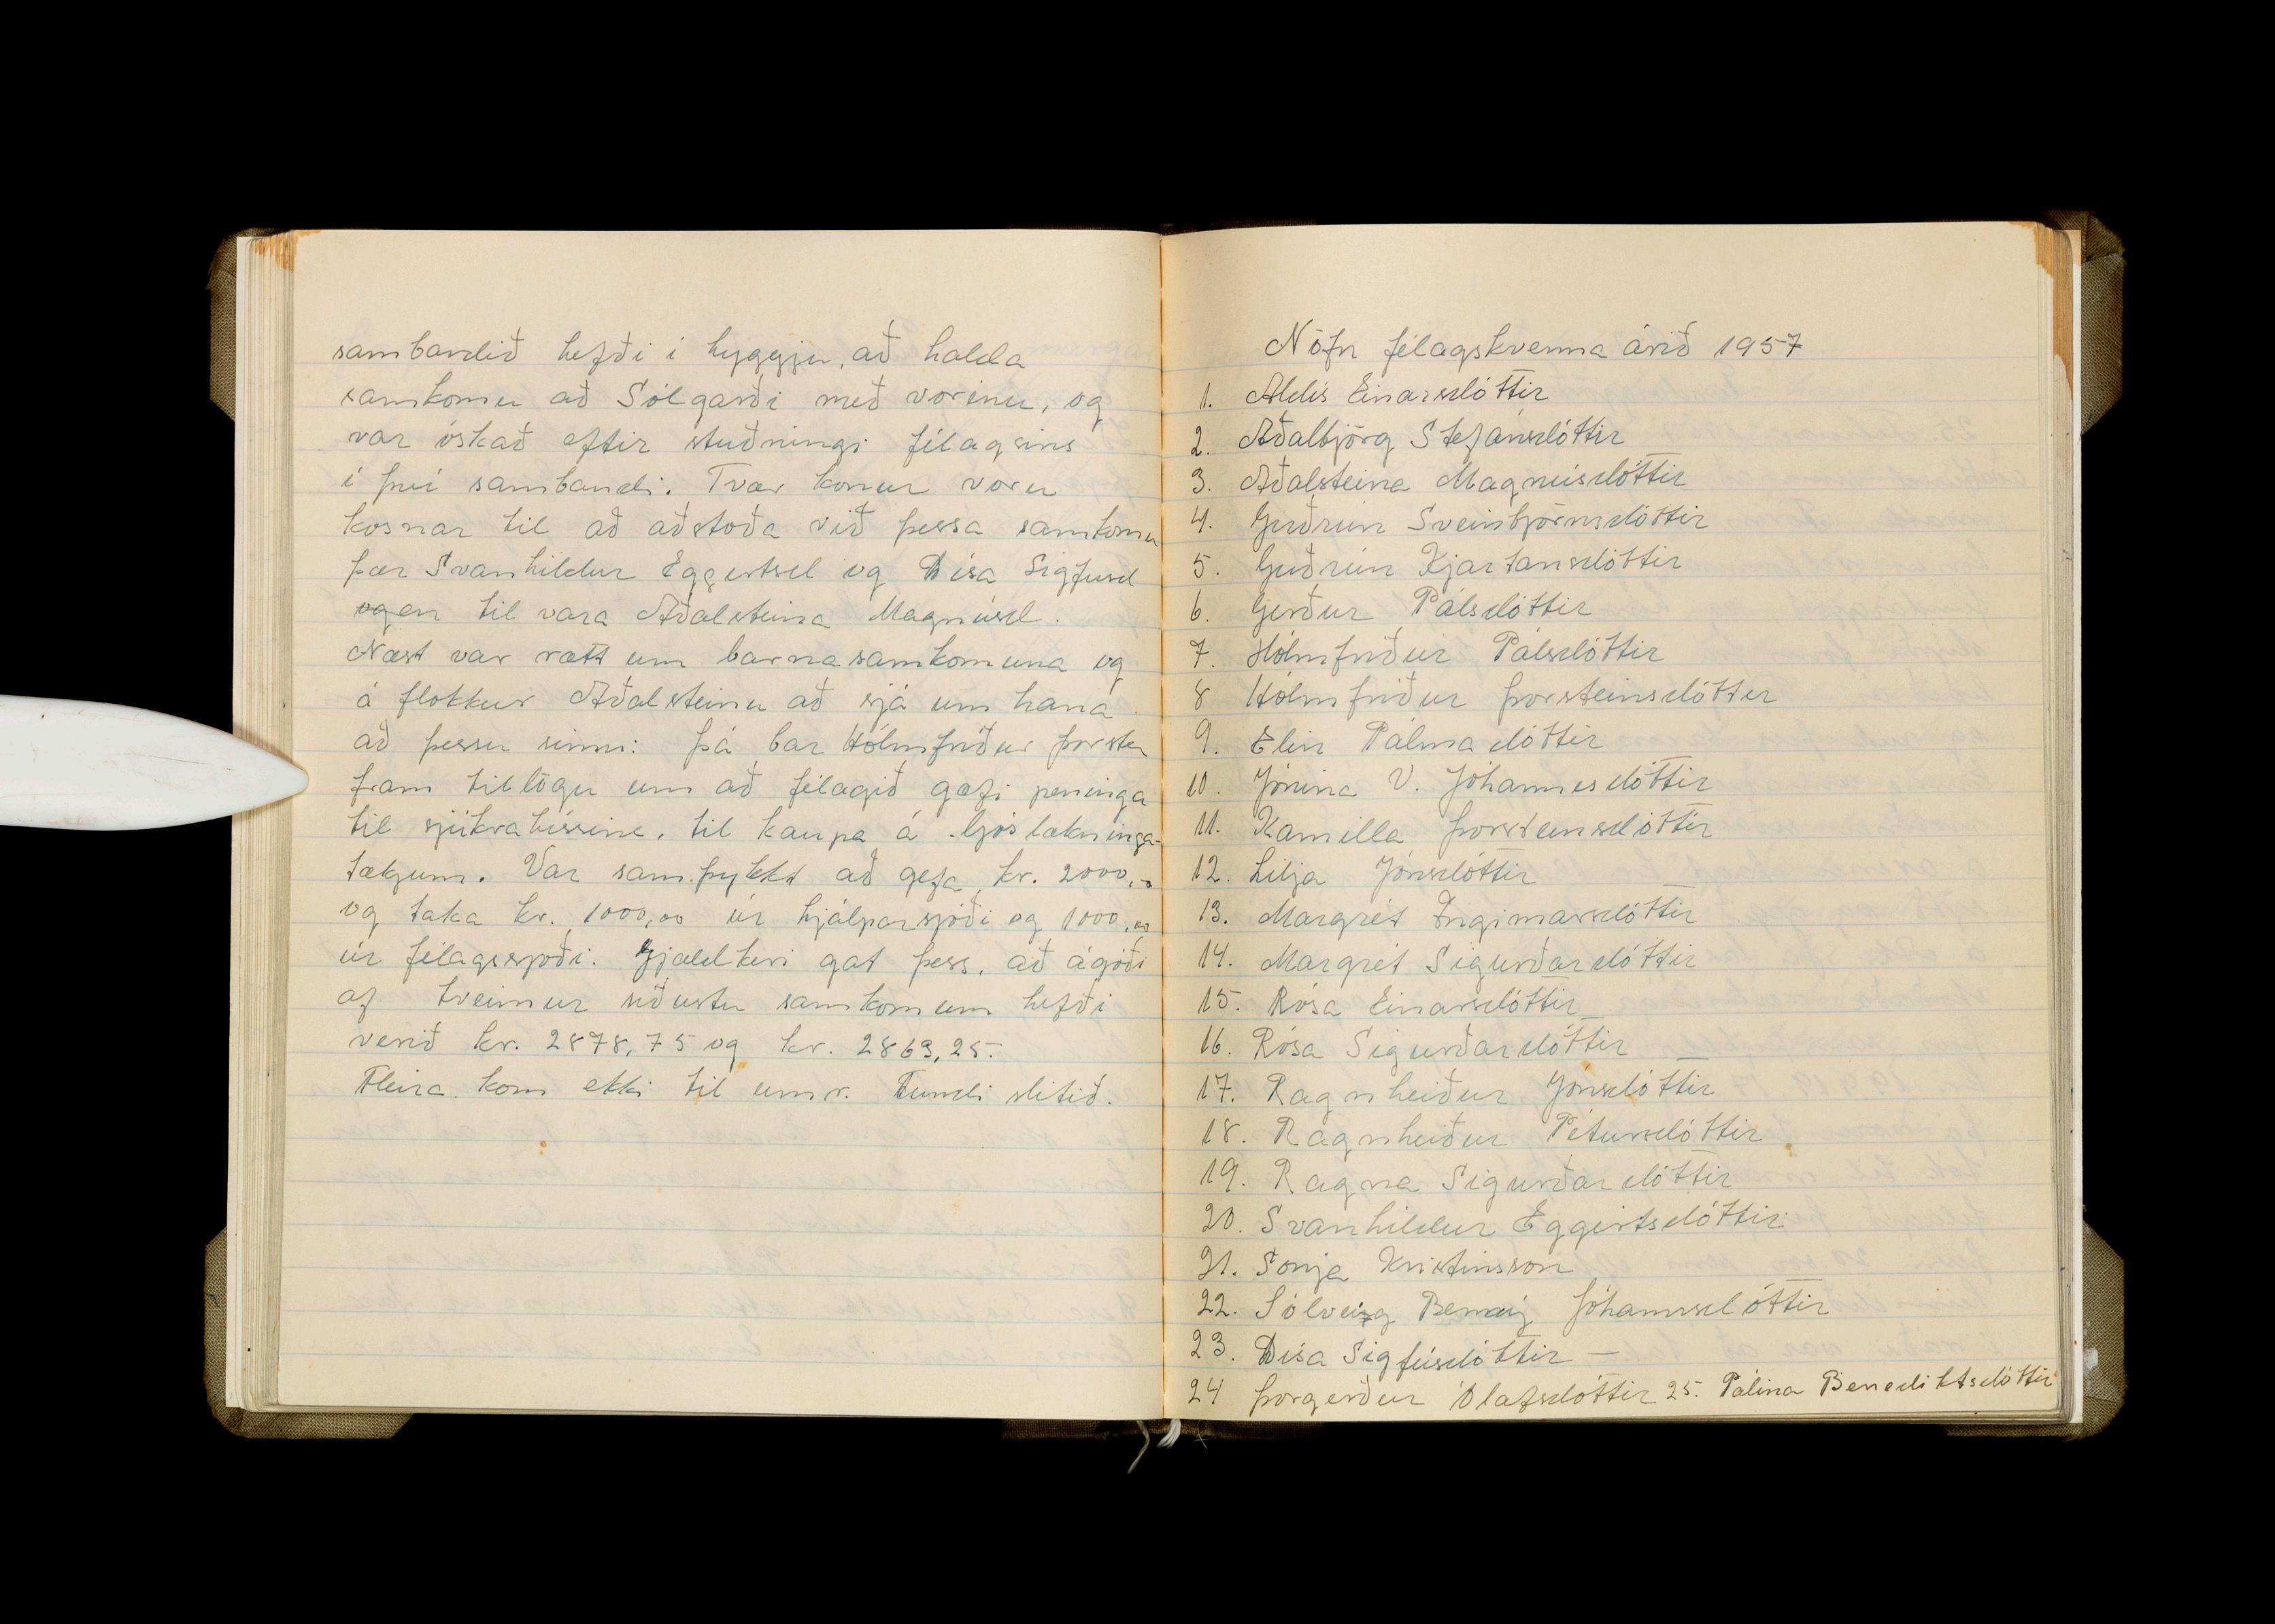 sambandið hefði í hyggju, að halda
samkomu að Sólgarði með vorinu, og
var óskað eftir stuðningi félagsins
í því sambandi. Tvær konur voru
kosnar til að aðstoða við þessa samkomu
þær Svanhildur Eggertsd og Dísa Sigfusd
og en til vara Aðalsteina Magnúsd.
Næst var rætt um barnasamkomuna og
á flokkur Aðalsteinu að sjá um hana
að þessu sinni: Þá bar Hólmfríður Þorstei
fram tillögu um að félagið gæfi peninga
til sjúkrahússins, til kaupa á ljóslækninga-
tækjum. Var samþykkt að gefa kr. 2000,-
og taka kr. 1000,00 úr hjálparsjóði og 1000,00
úr félagssjóði. Gjaldkeri gat þess, að ágóði
af tveimur síðustu samkomum hefði
verið kr. 2878,75 og kr. 2863,25.
Fleira kom ekki til umr. Fundi slitið.
Nöfn félagskvenna árið 1957
1. Aldís Einarsdóttir
2. Aðalbjörg Stefánsdóttir
3. Aðalsteina Magnúsdóttir
4. Guðrún Sveinbjörnsdóttir
5. Guðrún Kjartansdóttir
6. Gerður Pálsdóttir
7. Hólmfríður Pálsdóttir
8 Hólmfríður Þorsteinsdóttir
9. Elín Pálmadóttir
10. Jónína V. Jóhannesdóttir
11. Kamilla Þorsteinsdóttir
12. Lilja Jónsdóttir
13. Margrét Ingimarsdóttir
14. Margrét Sigurðardóttir
15. Rósa Einarsdóttir
16. Rósa Sigurðardóttir
17. Ragnheiður Jónsdóttir
18. Ragnheiður Pétursdóttir
19. Ragna Sigurðardóttir
20. Svanhildur Eggertsdóttir
21. Sonja Kristinsson
22. Sólveig Jóhannsdóttir
23. Dísa Sigfúsdóttir —
24 Þorgerður Ólafsdóttir 25. Pálína Benediktsdóttir